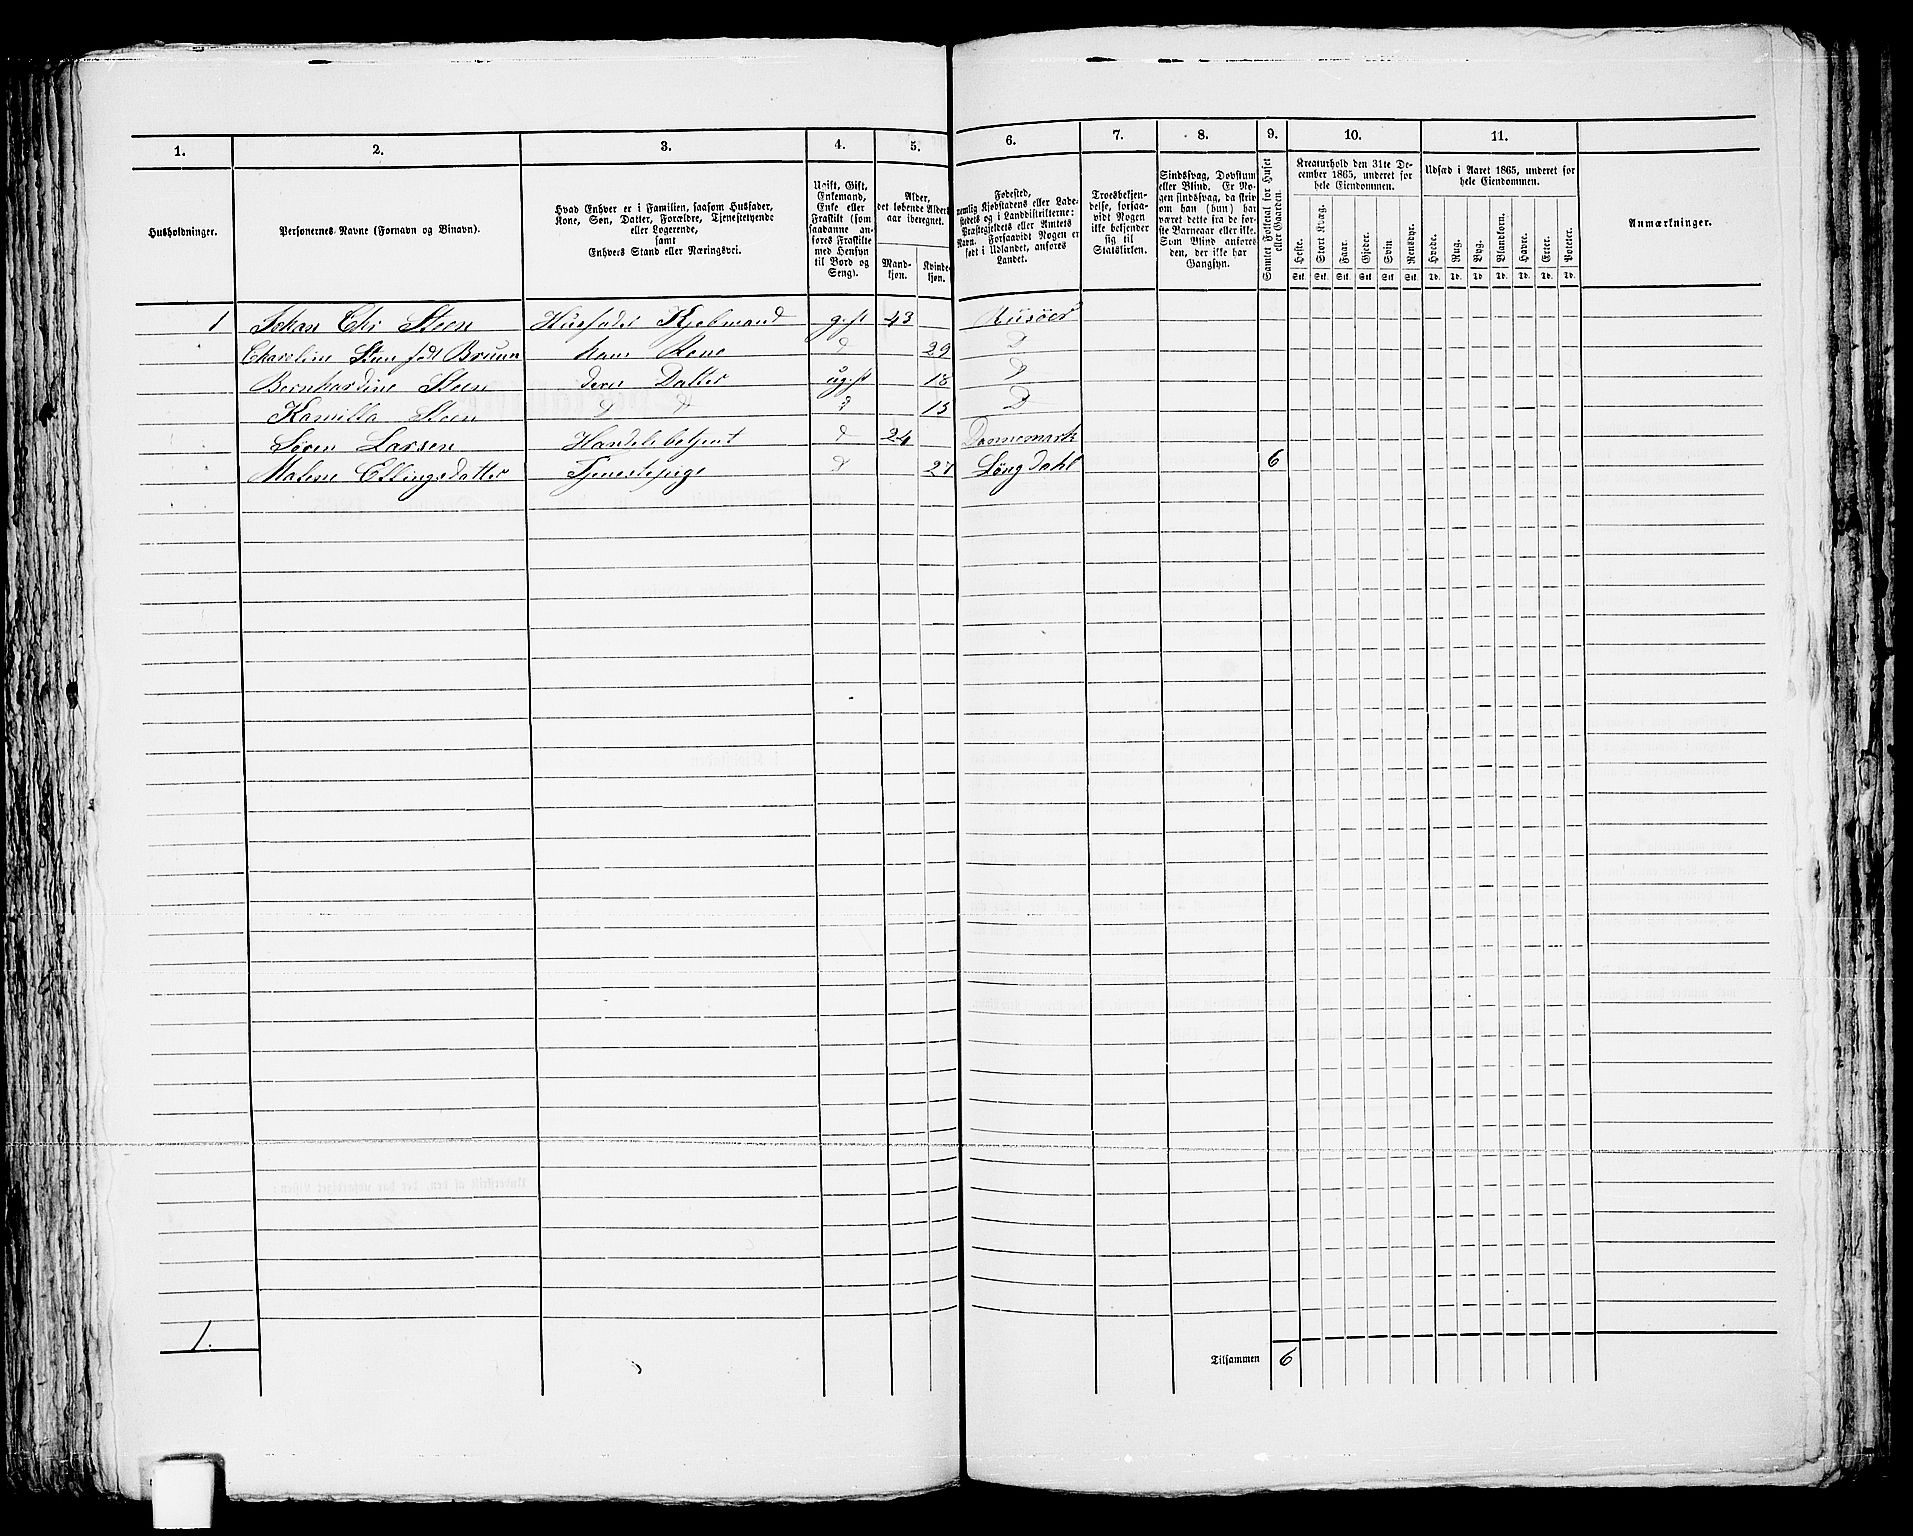 1. 2. 3. 4. 5. 6. 7. 8. 9. 10. 11.
Husholdninger.
Personernes Navne (Fornavn og Binavn).
Hvad Enhver er i Familien, saasom Husfader,
Kone, Søn, Datter, Forældre, Tjenestetyende
eller Logerende,
samt
Enhvers Stand eller Næringsvei.
Ugift, Gift,
Enkemand,
Enke eller
Fraskilt (som
saadanne an-
føres Fraskilte
med Hensyn
til Bord og
Seng).
Alder,
det løbende Alders-
aar iberegnet.
Mand-
kjøn.
Kvinde-
kjøn.
Fødested,
nemlig Kjøbstadens eller Lade-
stedets og i Landdistrikterne:
Præstegjeldets eller Amtets
Navn. Forsaavidt Nogen er
født i Udlandet, anføres
Landet.
Troesbekjen-
delse, forsaa-
vidt Nogen
ikke bekjender
sig til
Statskirken.
Sindssvag, Døvstum
eller Blind. Er No-
gen sindssvag, da skriv
om han (hun) har
været dette fra de før-
ste Barneaar eller ikke.
Som Blind anføres
den, der ikke har
Gangsyn.
Samlet Folketal for Huset
eller Gaarden.
Kreaturhold den 31te De-
cember 1865, underet for
hele Eiendommen.
Heste. Stort Kvæg. Faar. Gjeder. Svin. Rensdyr.
Stk. Stk. Stk. Stk. Stk. Stk.
Udsæd i Aaret 1865, underet for
hele Eiendommen.
Hvede. Rug. Byg. Blandkorn. Havre. Erter. Poteter.
Td. Td. Td. Td. Td. Td. Td.
Anmærkninger.
1 Johan Chr Steen Husfader Kjøbmand gift 43 Riisöer
Charoline Steen født Bruun hans Kone D 29 D
Bernhardine Steen deres Datter ugift 18 D
Kamilla Steen D D D 15 D
Søren Larsen Handelsbetjent D 24 Dannemark
Malene Ellingsdatter Tjenestepige D 27 Söngdahl 6
1.
Tilsammen 6